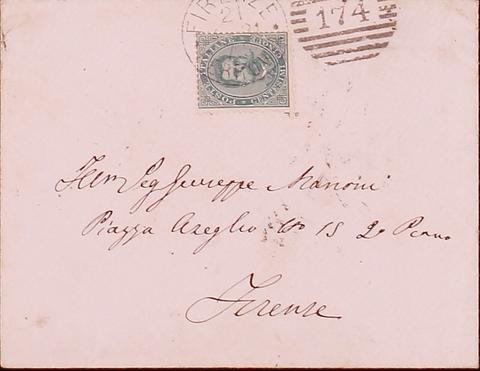 FIRENZE
21
174
POSTE ITALIANE
CENTESIMI
Illmo Sig Giuseppe Mancini
Piazza Azeglio No 15 2o Piano
Firenze